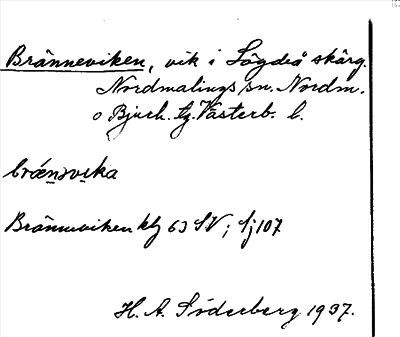 Bränneviken, vik i Lögdeå skärg.
Nordmalings sn. Nordm.
o Bjurh. tg. Västerb. l.
brǽn̲ɔvi̲ka
Bränneviken kbl 63 SV; Sj 107
H. A. Söderberg 1937.